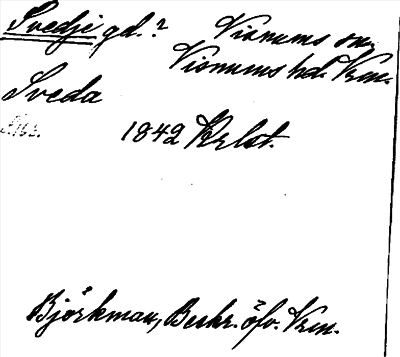 Svedje gd.? Visnums sn,
Visnums hd. Vrm.
Sveda
1842 Krlst.
Björkman, Beskr. öfv. Vrm.